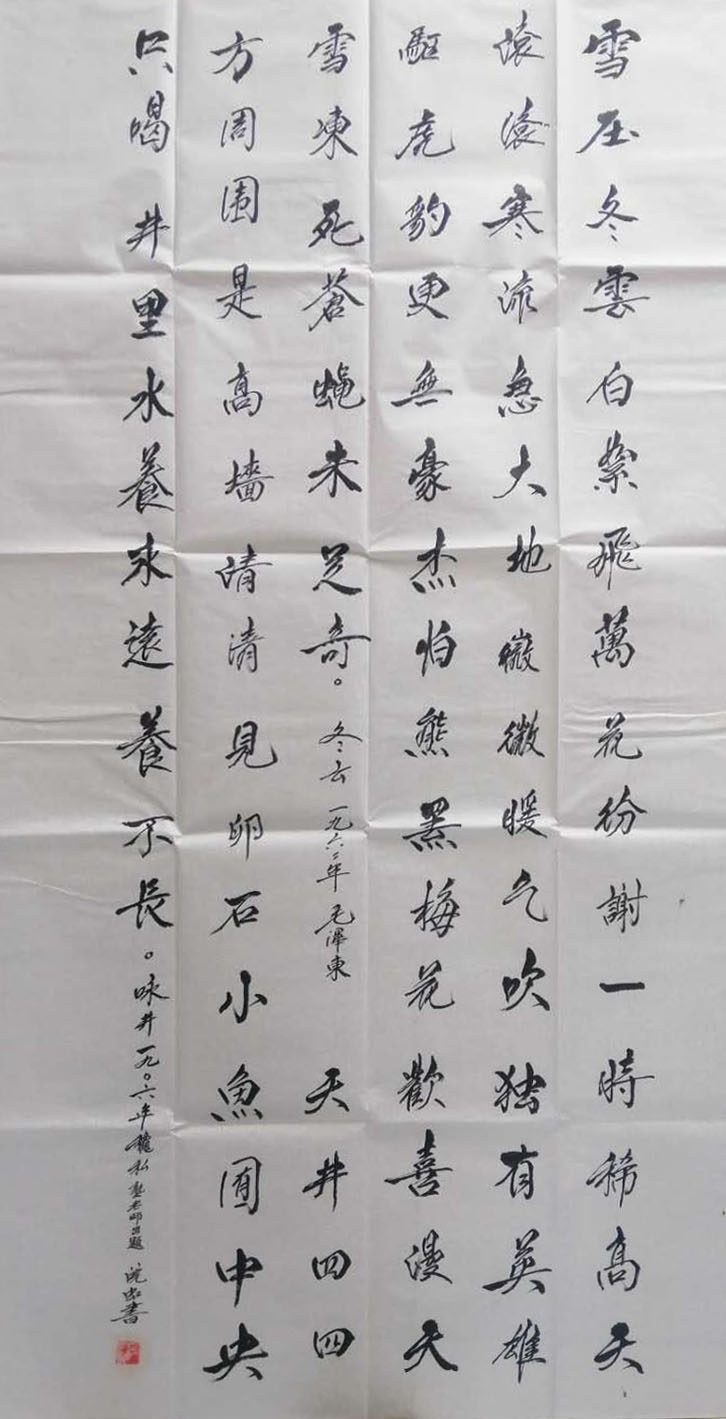 雪压冬雲白絮飛萬花纷謝一時稀高天
滚滚寒流急大地微微暖气吹独有英雄
驅虎豹更無豪杰怕熊罴梅花歡喜漫天
雪凍死蒼蝇未足奇。冬云 一九六二年 毛澤東 天井四四
方周围是高墙清清見卵石小魚囿中央
只喝井里水養永遠養不長。咏井一九〇六年私塾老師出題 書